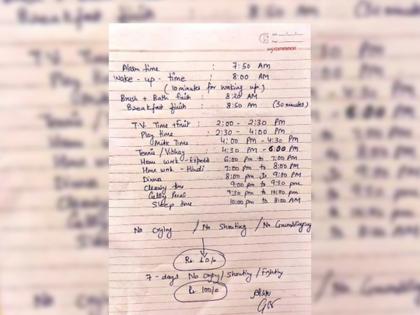 Alarm time : 7:50 AM
Wake-up-time : 8:00 AM
(10 minutes for waking up)
Brush + Bath finish : 8:20 AM
Breakfast finish : 8:50 AM (30 minutes)
T.V. Time + fruit : 2:00 - 2:30 PM
Play time : 2:30 - 4:00 PM
Milk Time : 4:00 PM - 4:30 PM
Tennis / : 4:30 PM - 6:00 PM
Home work - : 6:00 PM to 7:00 PM
Home work - Hindi : 7:00 PM to 8:00 PM
Dinner : 8:00 PM to 9:00 PM
Cleaning time : 9:00 PM to 9:30 PM
: 9:30 PM to 10:00 PM
Sleep time : 10:00 PM to 8:00 AM
No Crying / No Shouting / No Grumbling
Rs. 10/-
7-days No crying / shouting / fighting
Rs. 100/-